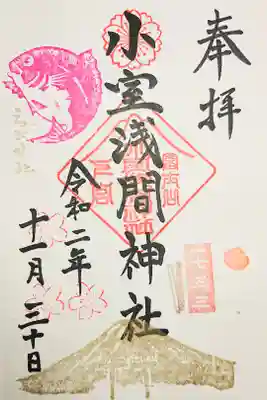 奉拝
小室浅間神社
令和二年
十一月三十日
七五三